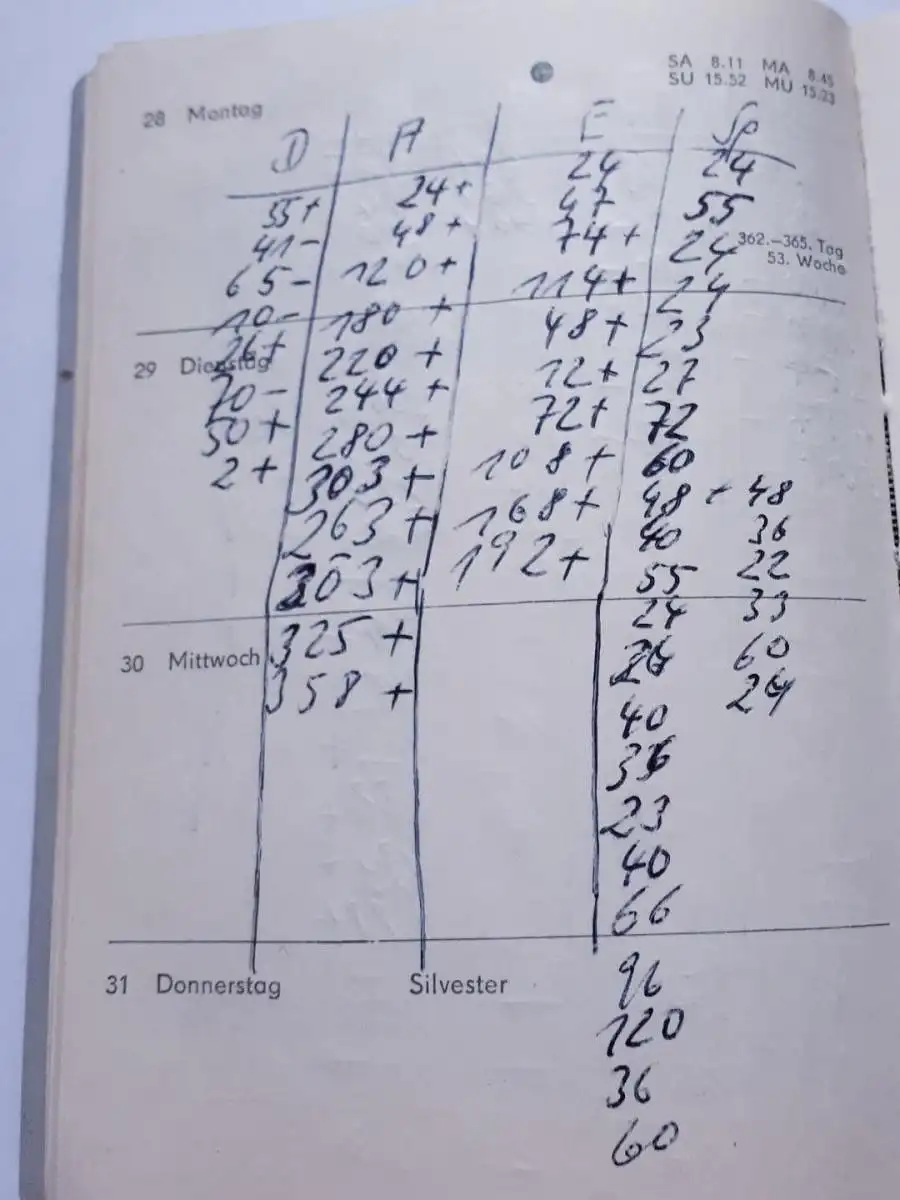 SA 8.11 MA 8.45
28 Montag SU 15.52 MU 15.23
D A E Sp
24 24
55+ 24+ 47 55
41- 48+ 74+ 24 362.–365. Tag
65- 120+ 114+ 24 53. Woche
10- 180+ 48+ 23
29 Dienstag 26+ 220+ 12+ 27
70- 244+ 72+ 72
50+ 280+ 108+ 60
2+ 303+ 168+ 48 + 48
263+ 192+ 40 36
303+ 55 22
325+ 24 33
30 Mittwoch 60
358+ 24
40
36
23
40
66
31 Donnerstag Silvester
96
120
36
60